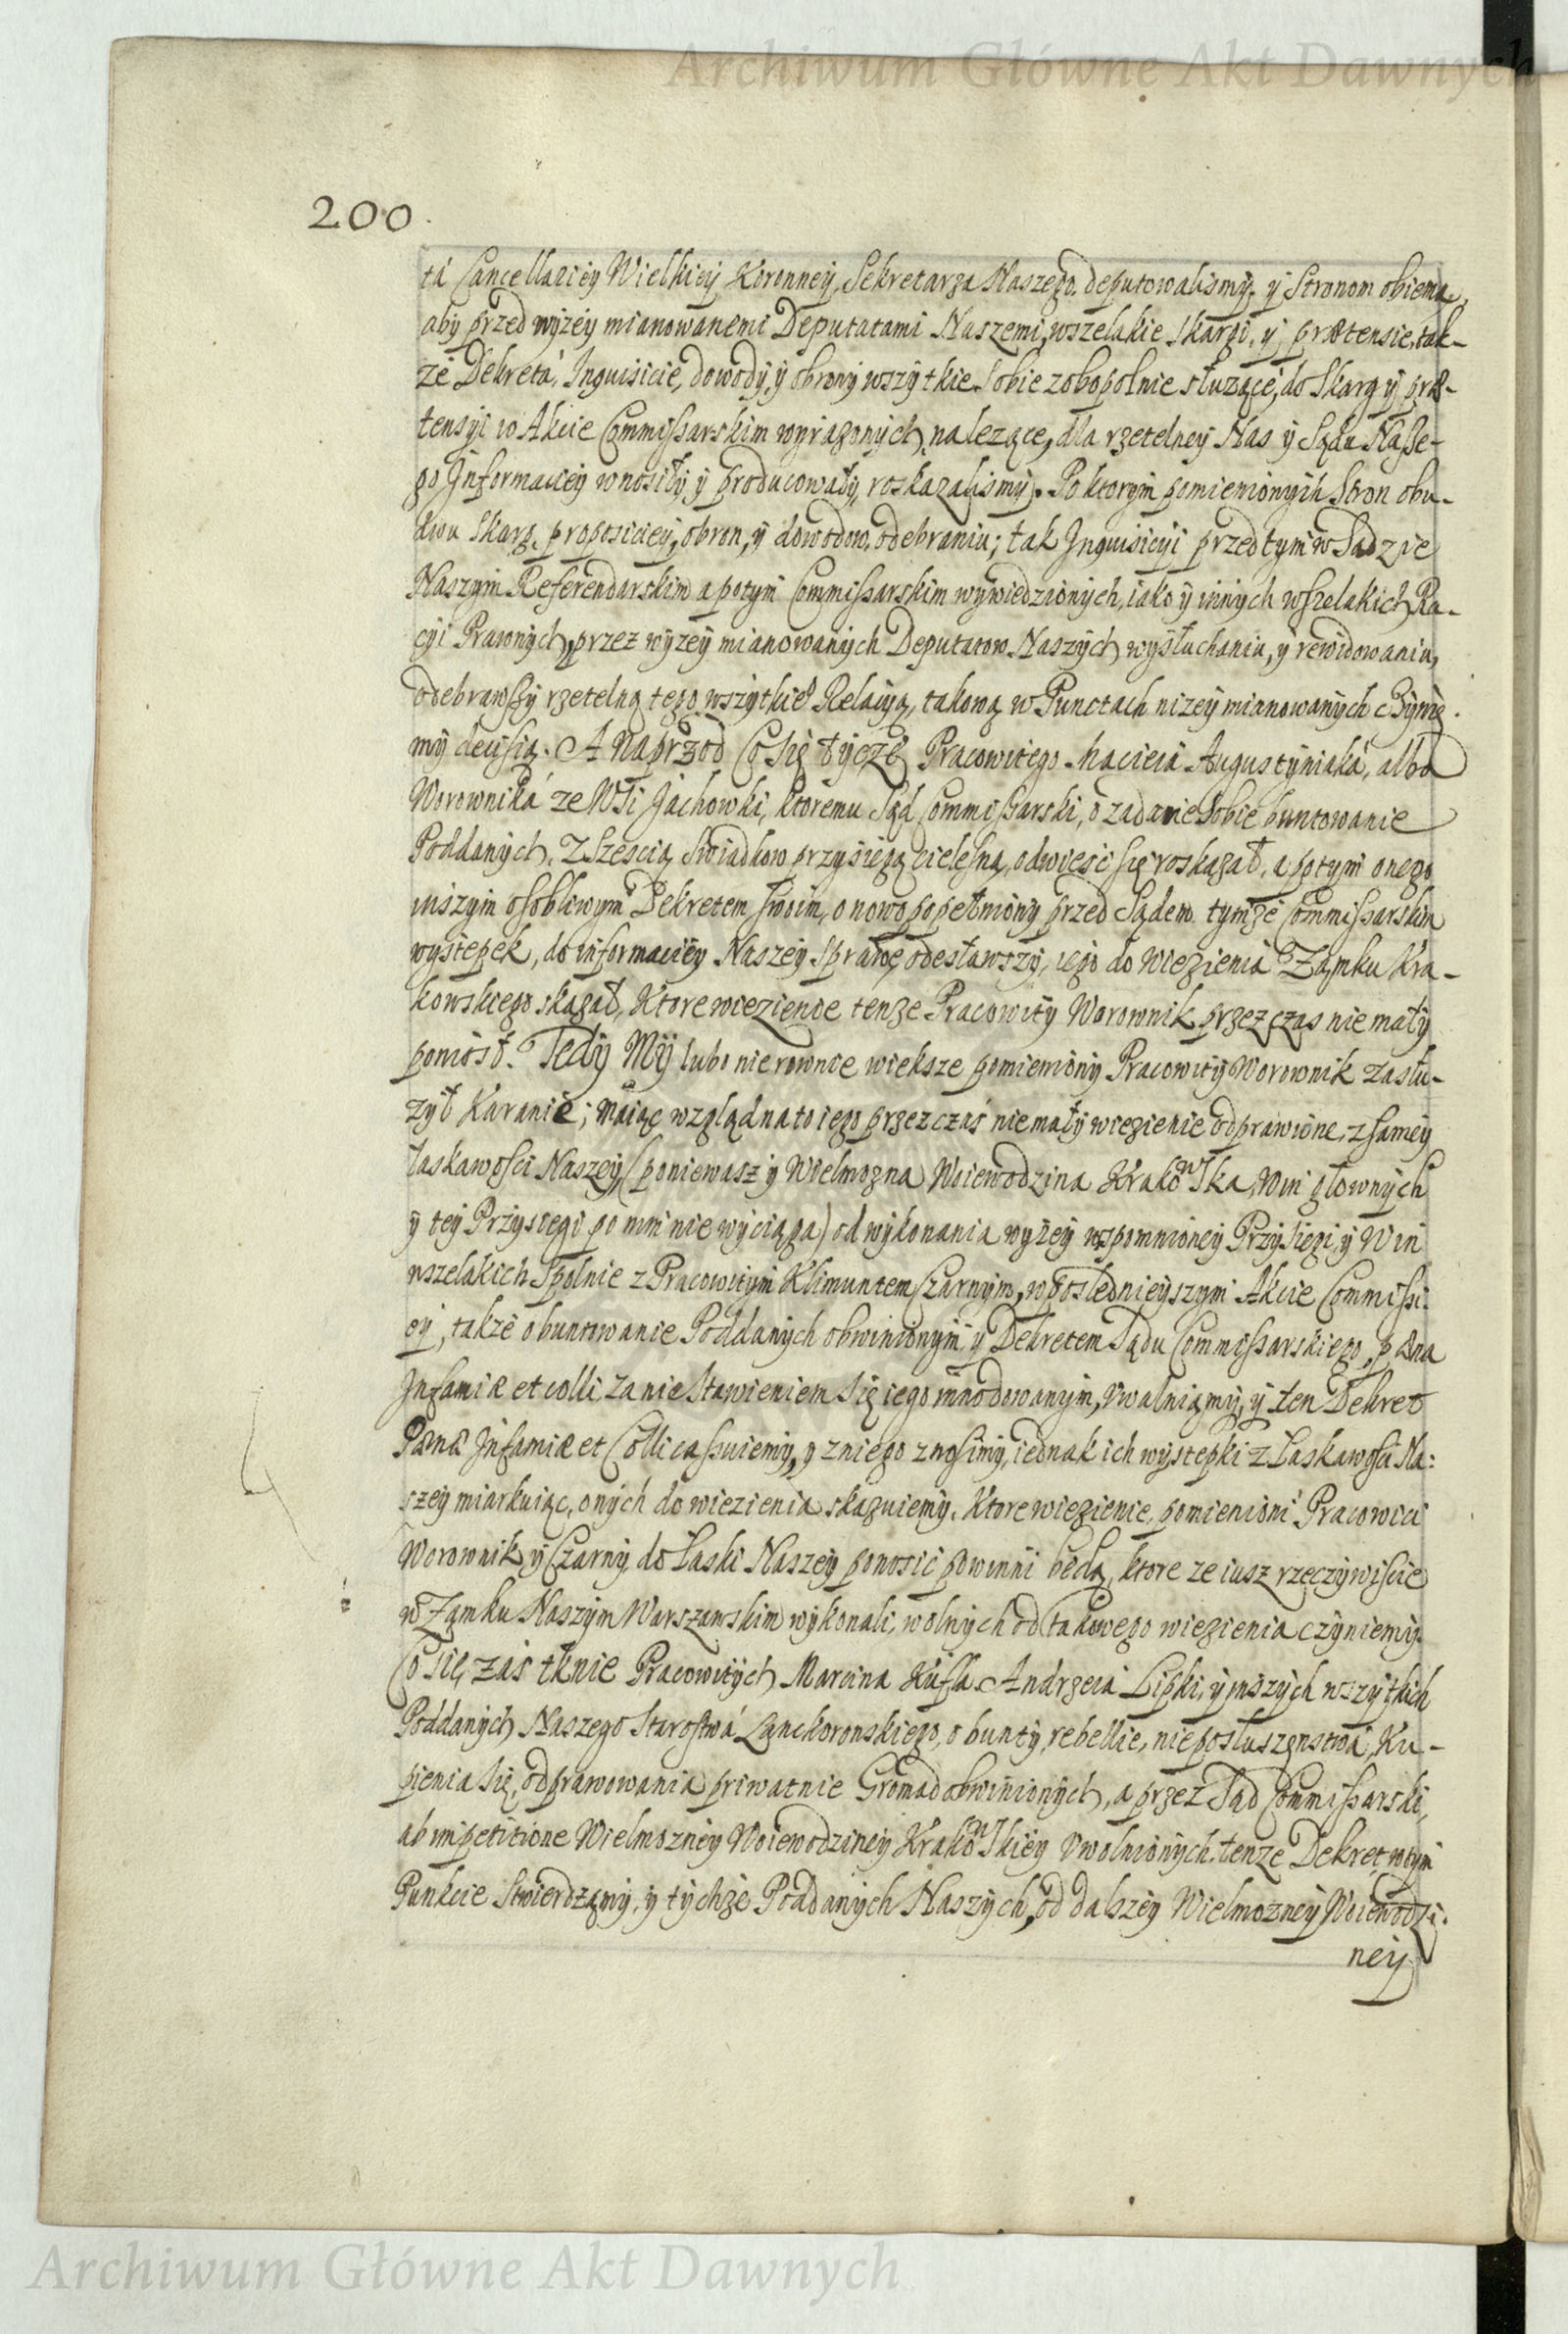 Archiwum Główne Akt Dawnych
200
tá Cancellariey Wielkiey Koronney, Sekretarza Naszego deputowalismy, y Stronom obiema,
aby przed wyzey mianowanemi Deputatami Naszemi, wszelakie skargi, y prætensie, tak-
ze Dekretá, Inquisicie, dowody, y obrony wszytkie Sobie zobopolnie słuzące, do Skarg y præ-
tensyi w Akcie Commissarskim wyrazonych nalezące, dla rzetelney Nas y Sądu Nasze-
go Informaciey wnosiły, y producowały, roskazalismy. Po ktorym pomienionych Stron obu-
dwu Skarg, proposiciey, obron, y dowodow, odebraniu; tak Inquisicyi przed tym w Sądzie
Naszym Referendarskim a potym Commissarskim wywiedzionych, iako y innych wszelakich Ra-
cyi Prawnych, przez wyzey mianowanych Deputatow Naszych wysłuchaniu, y rewidowaniu,
odebrawszy rzetelną tego wszytkie° Relacyą, takową w Punctach nizey mianowanych czynie.
my decisią. A naprzod Co się tycze Pracowitego Macieiá Augustyniaká, albo
Worowniká ze Wsi Jachowki, ktoremu Sąd Commissarski, o zadanie Sobie buntowanie
Poddanych, Z Szescią Swiadkow przysięgą cielesną, odwiesć się roskazał, a potym onego
inszym osobliwym Dekretem swoim, o nowo popełniony przed Sądem tymze Commissarskim
wystepek, do informaciey Naszey sprawę odesławszy, iego do Wiezienia Zamku Kra-
kowskiego skazał, Ktore wiezienie tenze Pracowity Worownik przez czas nie mały
poniosł. Tedy My lubo nierownie wieksze pomieniony Pracowity Worownik zasłu-
zył Karanie; maiąc wzgląd na to iego przez czas nie mały wiezienie odprawione, z samey
łaskawosci Naszey, (poniewasz y Wielmozna Woiewodzina Krakowska, Win głownych
y tey Przysiegi po nim nie wyciąga) od wykonania wyzey wspomnioney Przysiegi, y Win
wszelakich Spolnie z Pracowitym Klimuntem Czarnym, w poslednieyszym Akcie Commissi-
ey, takze o buntowanie Poddanych obwinionym, y Dekretem Sądu Commissarskiego, pæna
Infamiæ et colli, za nie Stawieniem się iego innodowanym, Uwalniamy, y ten Dekret
Pænæ Infamiæ et Colli cassuiemy, y z niego znosimy, iednak ich wystepki z Łaskawosci Na:
szey miarkuiąc, onych do wiezienia skazuiemy. Ktore wiezienie, pomienioni Pracowici
Worownik y Czarny do Łaski Naszey ponosić powinni będą, ktore ze iusz rzeczywiscie
w Zamku Naszym Warszawskim wykonali, wolnych od takowego wiezienia czyniemy.
Co się zás tknie Pracowitych Marcina Kufla Andrzeiá Lipki, y inszych wszytkich
Poddanych Naszego Starostwá Lanckoronskiego, o bunty, rebellie, nieposłuszenstwá, Ku-
pienia się, odprawowania priwatnie Gromad obwinionych, a przez Sąd Commissarski,
ab impetitione Wielmozney Woiewodziney Krakowskiey Uwolnionych, tenze Dekret w tym
Punkcie Stwierdzamy, y tychze Poddanych Naszych, od dalszey Wielmozney Woiewodzi:
ney
Archiwum Główne Akt Dawnych